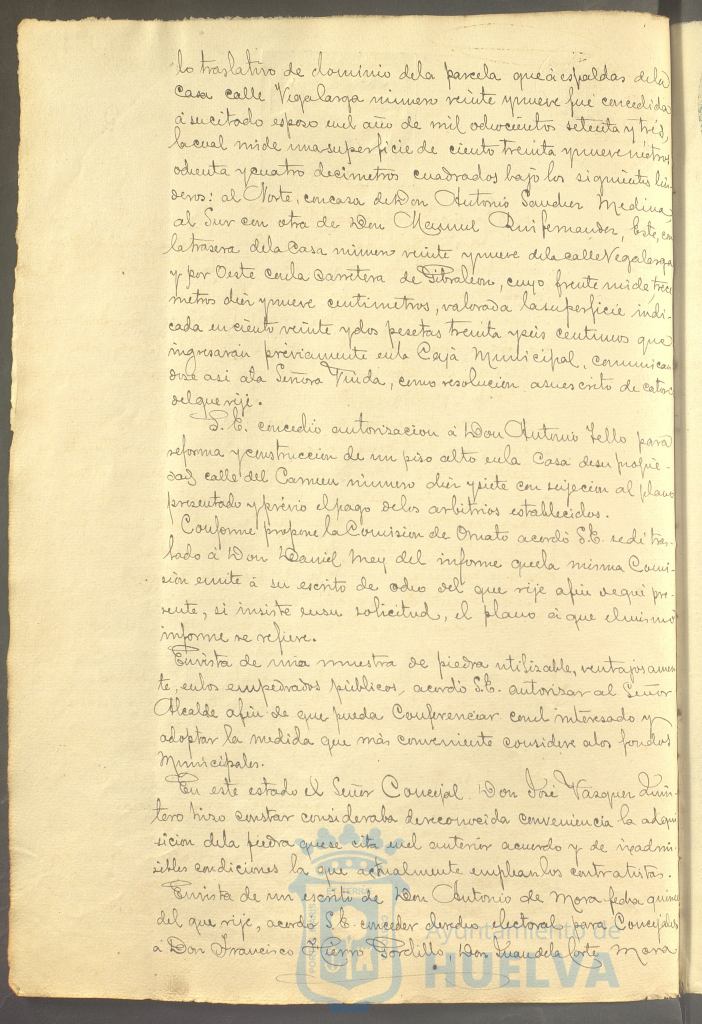 lo traslativo de dominio dela parcela que á espaldas dela
casa calle Vegalarga numero veinte y nueve fué concedida
á su citado esposo en el año de mil ochocientos setenta y tres,
la cual mide una superficie de ciento treinta y nueve metros
ochenta y cuatro decimetros cuadrados bajo los siguientes lin-
deros: al Norte, con casa de Don Antonio Sanchez Medina,
al Sur con otra de Don Manuel Ruifernandez, Este, con
la trasera dela casa numero veinte y nueve dela calle Vegalarga
y por Oeste con la carretera de Gibraleon, cuyo frente mide, trece
metros diez y nueve centimetros, valorada la superficie indi-
cada en ciento veinte y dos pesetas treinta y seis centimos que
ingresarán préviamente en la Caja Municipal, comunican-
dose asi ála Señora Viuda, como resolucion a su escrito de catorce
del que rije.
S. E. concedio autorizacion á Don Antonio Tello para
reforma y construccion de un piso alto en la casa de su propie-
dad calle del Carmen número diez y siete con sujecion al plano
presentado y prévio el pago delos arbitrios establecidos.
Conforme propone la Comision de Ornato acordó S.E. se dé tras-
lado á Don Daniel Mey del informe que la misma Comi-
sion emite á su escrito de ocho del que rije afin de que pre-
sente, si insiste en su solicitud, el plano á que el mismo
informe se refiere.
En vista de una muestra de piedra utilizable, ventajosamen-
te, en los empedrados públicos, acordó S.E. autorizar al Señor
Alcalde afin de que pueda conferenciar con el interesado y
adoptar la medida que más conveniente considere alos fondos
Municipales.
En este estado el Señor Concejal Don José Vazquez Quin-
tero hizo constar consideraba de reconocida conveniencia la adqui-
sicion dela piedra que se cita en el anterior acuerdo y de inadmi-
sibles condiciones la que actualmente emplean los contratistas.
En vista de un escrito de Don Antonio de Mora fecha quince
del que rije, acordó S.E. conceder derecho electoral para Concejales
á Don Francisco Hierro Gordillo, Don Juan dela Corte Mora
Ayuntamiento de
HUELVA